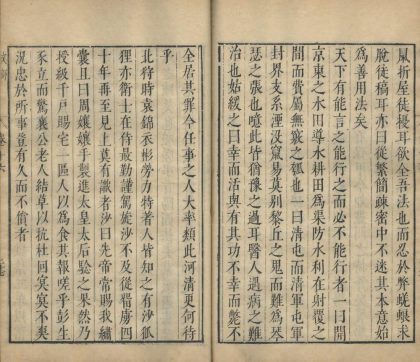 鼠折屋徒耳欲全吾法而忍於弊蜈螟求
脫徒稿耳亦曰從繁簡疎密中不迷其本意始
爲善用法矣
天下有能言之能行之而必不能行者一曰開
京東之水田導水耕田爲渠防水利在射覆之
間而費屬無竅之瓠也一曰清屯而清軍屯軍
封界支系湮沒氣易莫别黎丘之鬼而難爲琴
瑟之張也噫此皆猶豫之過耳醫人遇病之難
治也姑緩之曰幸而活與有其功不幸而斃不
全居其罪今任事之人大率類此河清更何待
乎
北狩時袁錦衣彬勞力持著人皆知之有沙狐
狸亦衛士在侍最勤謹駕旋沙不及從羈虜四
十年再至見上莫有識者沙曰先帝常賜我繡
囊且曰周孃孃手製進太皇太后騐之果然乃
授級千戸賜宅一區人以爲食其報嗟乎彭生
豕立而驚襄公老人結草以抗杜回冥冥不爽
況忠於所事豈有久而不償者